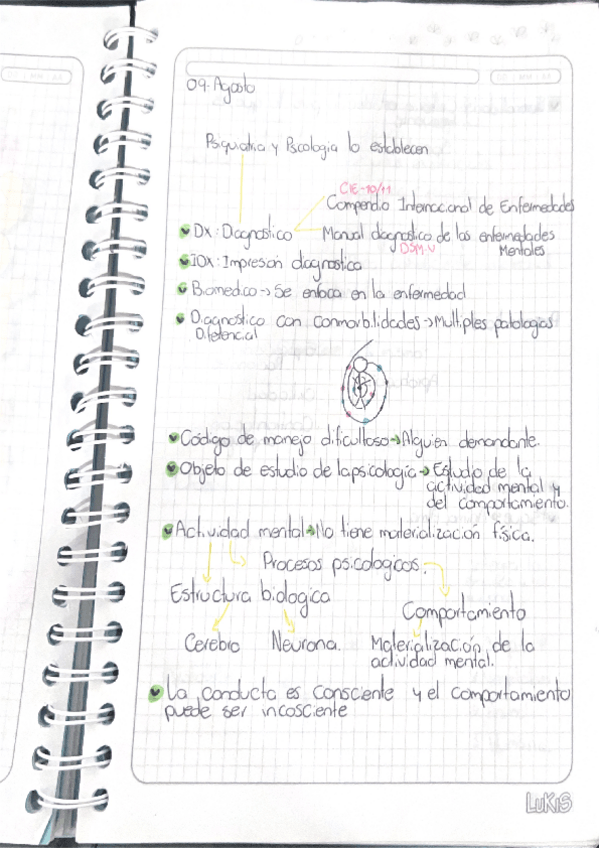 09-Agosto
Psiquiatria y Psicologia lo establecen
CIE-10/11
Compendio Internacional de Enfermedades
Dx: Diagnostico
Manual diagnostico de las enfermedades
DSM-V
Mentales
IDX: Impresion diagnostica
Biomedico→Se enfoca en la enfermedad
Diagnostico con conmorbilidades→Multiples patologias
Diferencial
Código de manejo dificultoso→Alguien demandante.
Objeto de estudio de la psicologia→Estudio de la
actividad mental y
del comportamiento.
Actividad mental→No tiene materialización física.
Procesos psicologicos.
Estructura biologica
Comportamiento
Cerebro
Neurona.
Materialización de la
actividad mental.
La conducta es consciente y el comportamiento
puede ser incosciente
LUKIS